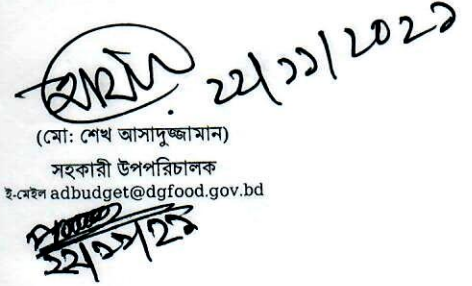 ২২/১১/২০২১
(মো: শেখ আসাদুজ্জামান)
সহকারী উপপরিচালক
ই-মেইল adbudget@dgfood.gov.bd
২২/১১/২১